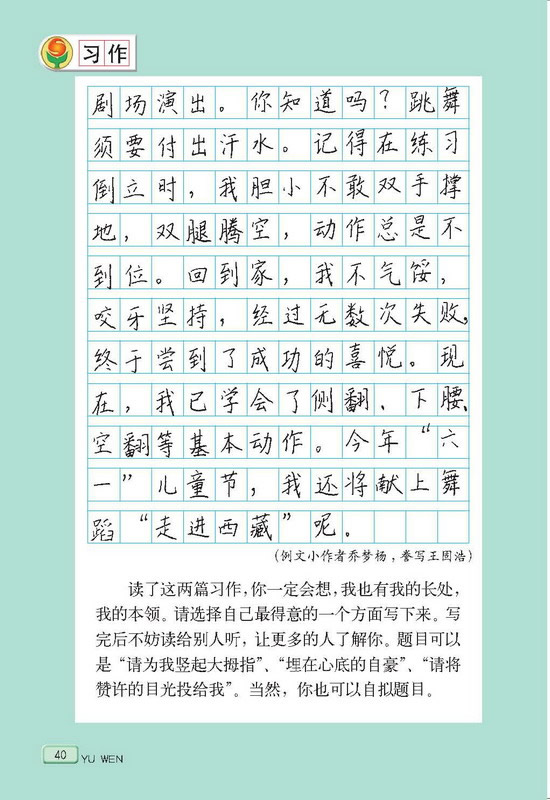 习作
剧场演出。你知道吗？跳舞
须要付出汗水。记得在练习
倒立时，我胆小不敢双手撑
地，双腿腾空，动作总是不
到位。回到家，我不气馁，
咬牙坚持，经过无数次失败，
终于尝到了成功的喜悦。现
在，我已学会了侧翻、下腰、
空翻等基本动作。今年“六
一”儿童节，我还将献上舞
蹈“走进西藏”呢。
（例文小作者乔梦杨，誊写王囡浩）
读了这两篇习作，你一定会想，我也有我的长处，
我的本领。请选择自己最得意的一个方面写下来。写
完后不妨读给别人听，让更多的人了解你。题目可以
是“请为我竖起大拇指”、“埋在心底的自豪”、“请将
赞许的目光投给我”。当然，你也可以自拟题目。
40 YU WEN